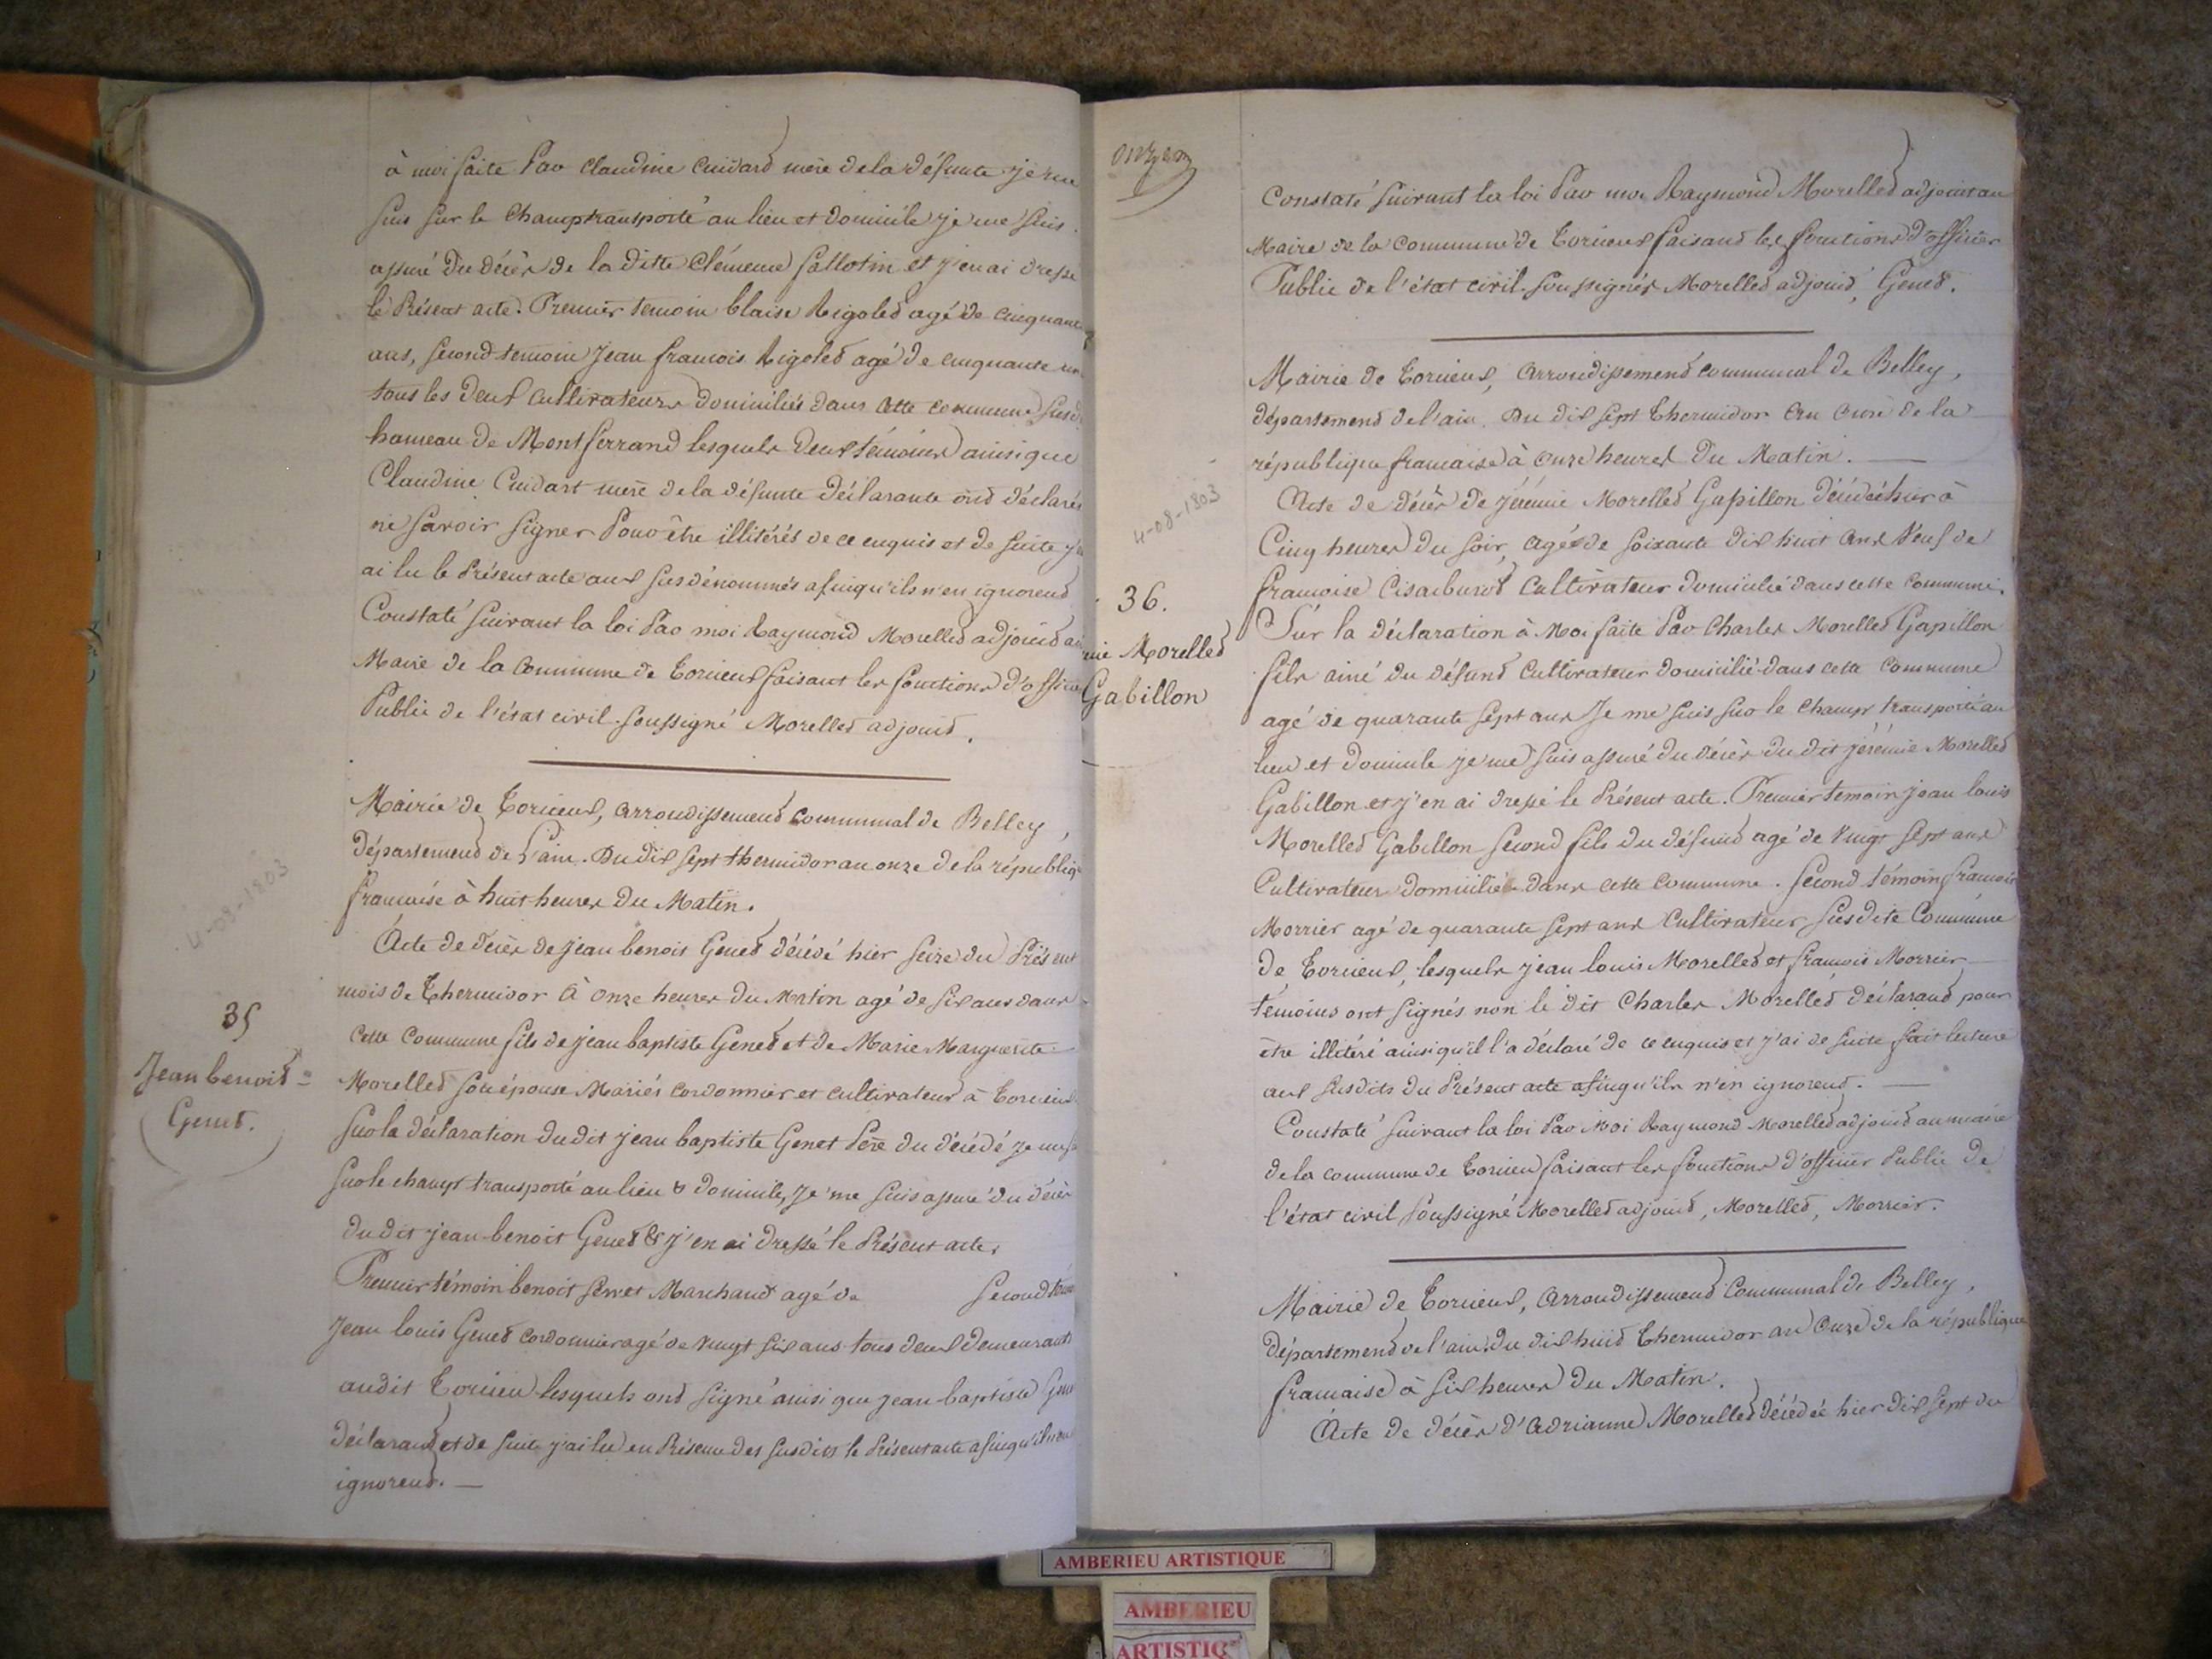 à moi faite Par Claudine Cuidard mère de la défunte je me
suis sur le Champ transporté au lieu et domicile je me suis
assuré du décès de la ditte Clémence Sallotin et j'en ai dressé
le Présent acte. Premier temoin blaise Rigoled agé de cinquante
ans, second temoin Jean francois Rigoled agé de cinquante un
tous les deux Cultivateurs domiciliés dans cette commune susd
hameau de Montferrand lesquels deux témoins ainsi que
Claudine Cuidart mère de la défunte déclarante ond déclarés
ne savoir signer Pour être illitérés de ce enquis et de suite j'y
ai lu le Présent acte aux susdénommés afin qu'ils n'en ignorend
Constaté suivant la loi Par moi Raymond Morelled adjoind au
Maire de la Commune de Torcieux faisant les fonctions d'officier
Public de l'état civil. soussigné Morelled adjoind.
Mairie de Torcieux, arrondissemend communal de Belley,
Départemend de l'ain. Du dix sept thermidor an onze de la républiq
francaise à huit heures du Matin.
Acte de décès de Jean benoit Gened décédé hier seize du Présent
mois de Thermidor à onze heures du Matin agé de six ans dans
cette Commune fils de jean baptiste Gened et de Marie Marguerite
Morelled son épouse Mariés cordonnier et cultivateur à Torcieux.
35
Jean benoid =
Gened.
4-08-1803
Sur la déclaration du dit jean baptiste Genet Père du décédé je me s
sur le champ transporté au lieu & domicile, Je me suis assuré du décès
du dit jean benoit Gened & j'en ai dressé le Présent acte,
Premier témoin benoit Marchand agé de second tém
Jean louis Gened cordonnier agé de vingt six ans tous deux demeurants
audit Torcieu lesquels ond signé ainsi que jean baptiste Gene
déclarand et de suite j'ai lu en Présence des susdits le Présent acte afin qu'ils n'en
ignorend. —
onze
Constaté suivant la loi Par moi Raymond Morelled adjoint au
Maire de la Commune de Torcieux faisand les fonctions d'officier
Public de l'état civil. soussignés Morelled adjoind, Gened.
Mairie de Torcieux, arrondissemend communal de Belley,
départemend de l'ain. Du dix sept Thermidor an onze de la
république francaise à onze heures du Matin. —
4-08-1803
36.
mie Morelled
Gabillon
Acte de décès de Jérémie Morelled Gapillon décédé hier à
Cinq heures du soir, agé de soixante dix huit ans Veuf de
francoise Cultivateur domicilié dans cette commune.
Sur la déclaration à Moi faite Par Charles Morelled Gapillon
fils ainé du défund Cultivateur domicilié dans cette commune
agé de quarante sept ans Je me suis sur le Champ transporté au
lieu et domicile je me suis assuré du décès du dit jérémie Morelled
Gabillon et j'en ai dressé le Présent acte. Premier temoin jean louis
Morelled Gabillon second fils du défund agé de vingt sept ans
Cultivateur domicilié dans cette commune. second témoin francois
Morrier agé de quarante sept ans Cultivateur susdite Commune
de Torcieux, lesquels jean louis Morelled et francois Morrier
témoins ont signés non le dit Charles Morelled déclarand pour
être illitéré ainsi qu'il l'a déclaré de ce enquis et j'ai de suite fait lecture
aux susdits du Présent acte afin qu'ils n'en ignorend. —
Constaté suivant la loi Par Moi Raymond Morelled adjoind au maire
de la commune de Torcieu faisant les fonctions d'officier Public de
l'état civil soussigné Morelled adjoind, Morelled, Morrier.
Mairie de Torcieux, arrondissemend Communal de Belley,
départemend de l'ain, du dix huid Thermidor an onze de la république
francaise à six heures du Matin.
Acte de décès d'Adrianne Morelled décédée hier dix sept du
AMBERIEU ARTISTIQUE
AMBERIEU
ARTISTIQ